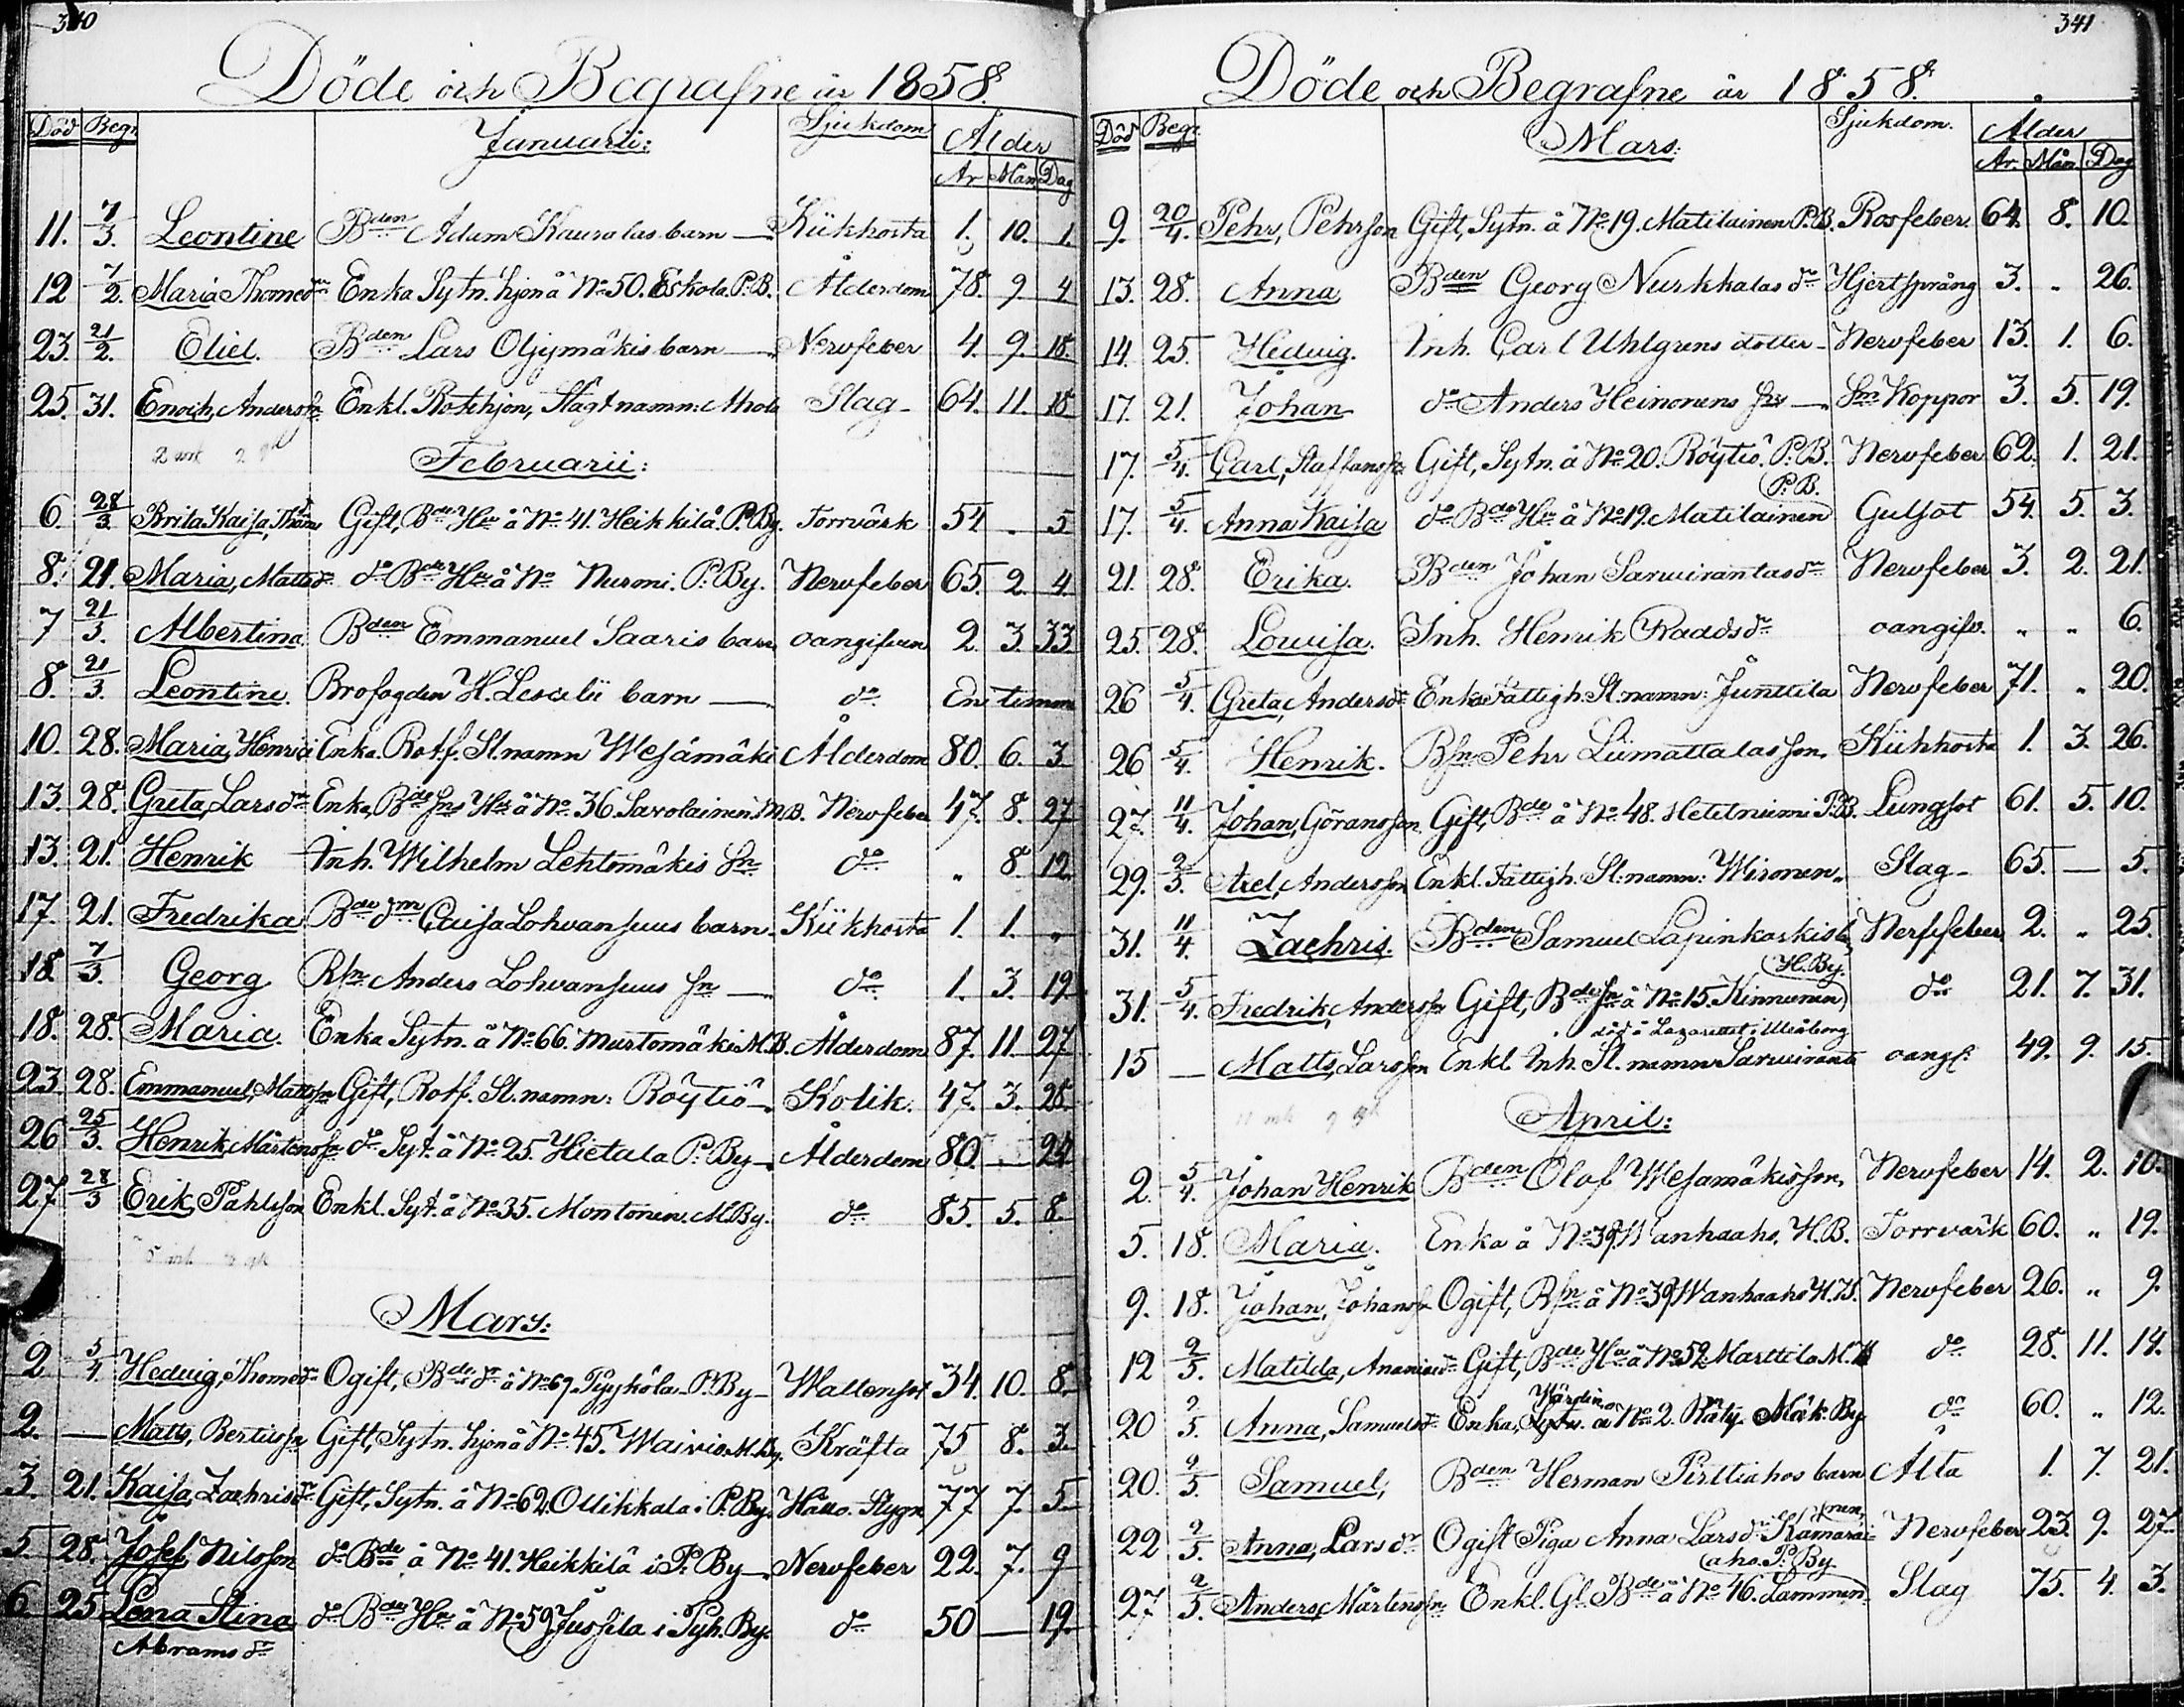 340
Döde och Begrafne år 1858.
Död Begr. Januarii: Sjukdom Ålder
År Mån Dag
11. 7/3. Leontine Bden Adam Kauralas barn — Kikhosta 1. 10. 1.
12 7/2. Maria Thomedr Enka Sytn. hjon å No 50. Eskola. P. B. Ålderdom 78. 9 4
23 21/2. Eliel. Bden Lars Oljymäkis barn — Nervfeber 4. 9. 18.
25. 31. Enoch, Andersn Enkl. Rotehjon, Slägtnamn: Ahola Slag - 64. 11. 18
Februarii:
6. 28/3. Brita Kaisa, Thoms Gift, Bde Hu å No 41. Heikkilä. P. By. Torrvärk 54 . 5
8. 21. Maria, Mattsdr do Bde Hu å No Nurmi. P. By. Nervfeber 65. 2. 4.
7 21/3. Albertina. Bden Emmanuel Saaris barn oangifven 2. 3. 33
8. 21/3. Leontine. Brofogden H. Lescelii barn — do En timme
10. 28. Maria, Henrici Enka. Rotf. Sl. namn Wesämäki Ålderdom 80. 6. 3
13. 28. Greta, Larsdr Enka, Bde sns Hu å No 36. Savolainen. M. B. Nervfeber 47. 8. 27
13. 21. Henrik Inh. Wilhelm Lehtomäkis Sn do „ 8 12.
17. 21. Fredrika Bde dm Caisa Lohvansuus barn. Kikhosta 1. 1. „
18. 7/3. Georg Bsn Anders Lohvansuus sn — do 1. 3. 19
18. 28. Maria. Enka Sytn. å No 66. Murtomäki M. B. Ålderdom 87. 11 27
23 28. Emmanuel, Mattssn Gift, Rotf. Sl. namn: Röytiö —. Kolik. 47. 3. 28.
26 25/3. Henrik, Mårtenssn do Syt. å No 25. Hietala P. By —. Ålderdom 80. — 24
27 28/3 Erik, Påhlsson Enkl. Syt. å No 35. Montonen. M. By. do 85. 5. 8.
Mars:
2 5/4 Hedvig, Thomedr Ogift, Bde dr å No 67. Pyykölä P. By — Wattensot 34. 10. 8.
2. — Matts, Bertilssn Gift, Sytn. hjon å No 45. Waivio. M. By. Kräfta 75 8. 3.
3. 21. Kaisa, Zachrisdr Gift, Sytn. å No 62. Ollikkala i P. By. Håll o. Stygn 77 7. 5
5. 28. Josef, Nilsson do Bde å No 41. Heikkilä i P. By —. Nervfeber 22. 7. 9
6 25 Lena Stina do Bde Hu å No 59 Jussila i Pyh. By. do 50 — 19.
Abramsdr
341
Döde och Begrafne år 1858.
Död Begr. Mars: Sjukdom. Ålder
År. Mån. Dag
9. 20/4. Pehr, Pehrson Gift, Sytn. å No 19. Matilainen P. B. Rosfeber. 64. 8. 10.
13. 28. Anna Bden Georg Nurkkalas dr Hjertsprång 3. „ 26.
14. 25. Hedvig. Inh. Carl Uhlgrens dotter - Nervfeber 13. 1. 6.
17. 21. Johan do Anders Heinonens sn — Sm Koppor 3. 5. 19.
17. 5/4. Carl, Staffanssn Gift, Sytn. å No 20. Röytiö. P. B. Nervfeber 62. 1. 21.
17. 5/4. Anna Kaisa do Bde Hu å No 19. Matilainen P. B. Gulsot 54. 5. 3.
21. 28. Erika. Bden Johan Sarvirantas dr Nervfeber 3. 2. 21.
25. 28. Lovisa. Inh. Henrik Raadsdr oangifv. „ „ 6.
26 5/4. Greta, Andersdr Enka Fattigh. Sl. namn: Junttila Nervfeber 71. „ 20.
26 5/4. Henrik. Bsn Pehr Liimattalas son. Kikhosta 1. 3. 26.
27. 11/4. Johan, Göransson Gift, Bde å No 48. Hetteniemi P. B. Lungsot 61. 5. 10.
29. 2/3. Axel, Andersson Enkl. Fattigh. Sl. namn: Wironen „ Slag - 65. — 5.
31. 11/4. Zachris. Bden Samuel Lapinkoskis b. Nervfeber 2. „ 25.
31. 5/4. Fredrik, Anderssn Gift, Bde sn å No 15. Kinnunen H. By. do 21. 7. 31.
död å Lazarettet i Uleåborg
15 — Matts, Larsson Enkl. Inh. Sl. namn Sarviranta oangf. 49. 9. 15.
April:
2. 5/4. Johan Henrik Bden Olof Wesamäkis son. Nervfeber 14. 2. 10.
5. 18. Maria. Enka å No 39 Wanhaaho. H. B. Torrvärk 60. „ 19.
9. 18. Johan, Johanssn Ogift, Bsn å No 39 Wanhaaho H. B. Nervfeber 26. „ 9.
12 2/5. Matilda, Ananiaedr Gift, Bde Hu å No 52 Marttila M. B do 28. 11. 14.
20 2/5. Anna, Samuelsdr Enka, Värdin. å No 2. Räty. Mäk. By do 60. „ 12.
20. 2/5. Samuel, Bden Herman Pirttiahos barn Ålta 1. 7. 21.
22 2/5. Anna, Larsdr Ogift Piga Anna Larsdr Kamarai-
aho. P. By Nervfeber 23. 9. 27
27 2/5. Anders, Mårtenssn Enkl. Gl. Bde å No 46. Lamminen Slag 75. 4. 3.